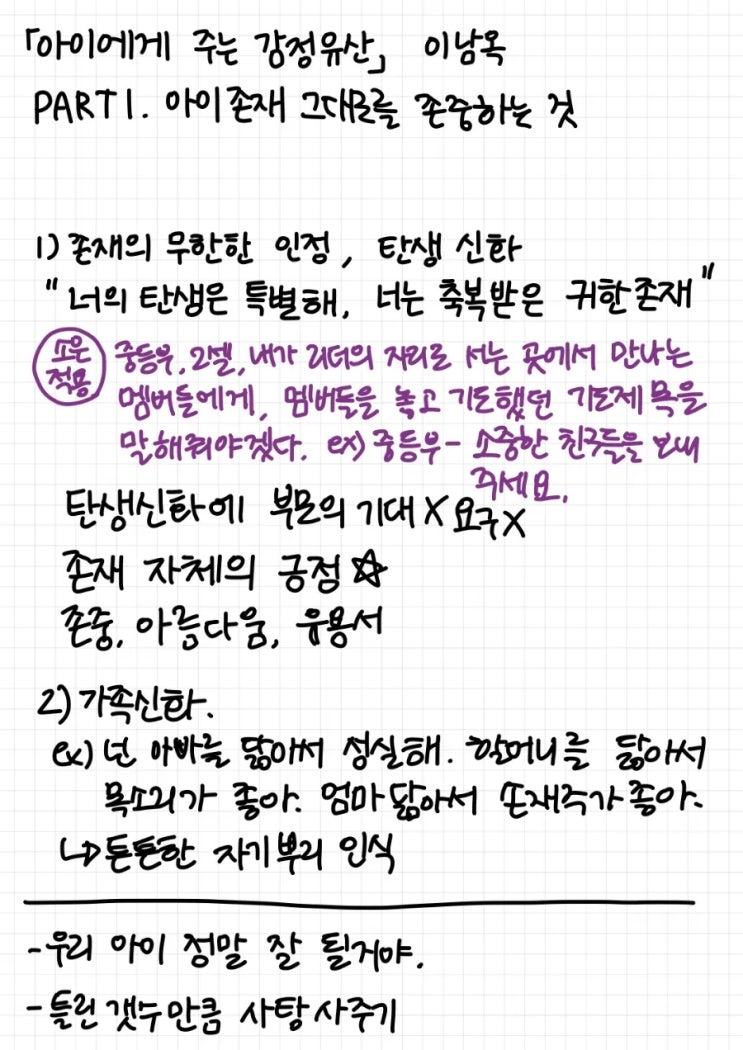 「아이에게 주는 감정유산」 이남옥
PART 1. 아이 존재 그대로를 존중하는 것
1) 존재의 무한한 인정, 탄생 신화
" 너의 탄생은 특별해, 너는 축복받은 귀한 존재 "
소은 적용
중등부, 2셀, 내가 리더의 자리로 서는 곳에서 만나는
멤버들에게, 멤버들을 놓고 기도했던 기도제목을
말해줘야겠다. ex) 중등부 - 소중한 친구들을 보내
주세요.
탄생신화에 부모의 기대 X 요구 X
존재 자체의 긍정 ☆
존중, 아름다움, 유용서
2) 가족신화.
ex) 넌 아빠를 닮아서 성실해. 할머니를 닮아서
목소리가 좋아. 엄마 닮아서 손재주가 좋아.
↳ 튼튼한 자기뿌리 인식
- 우리 아이 정말 잘 될거야.
- 틀린 갯수만큼 사탕 사주기